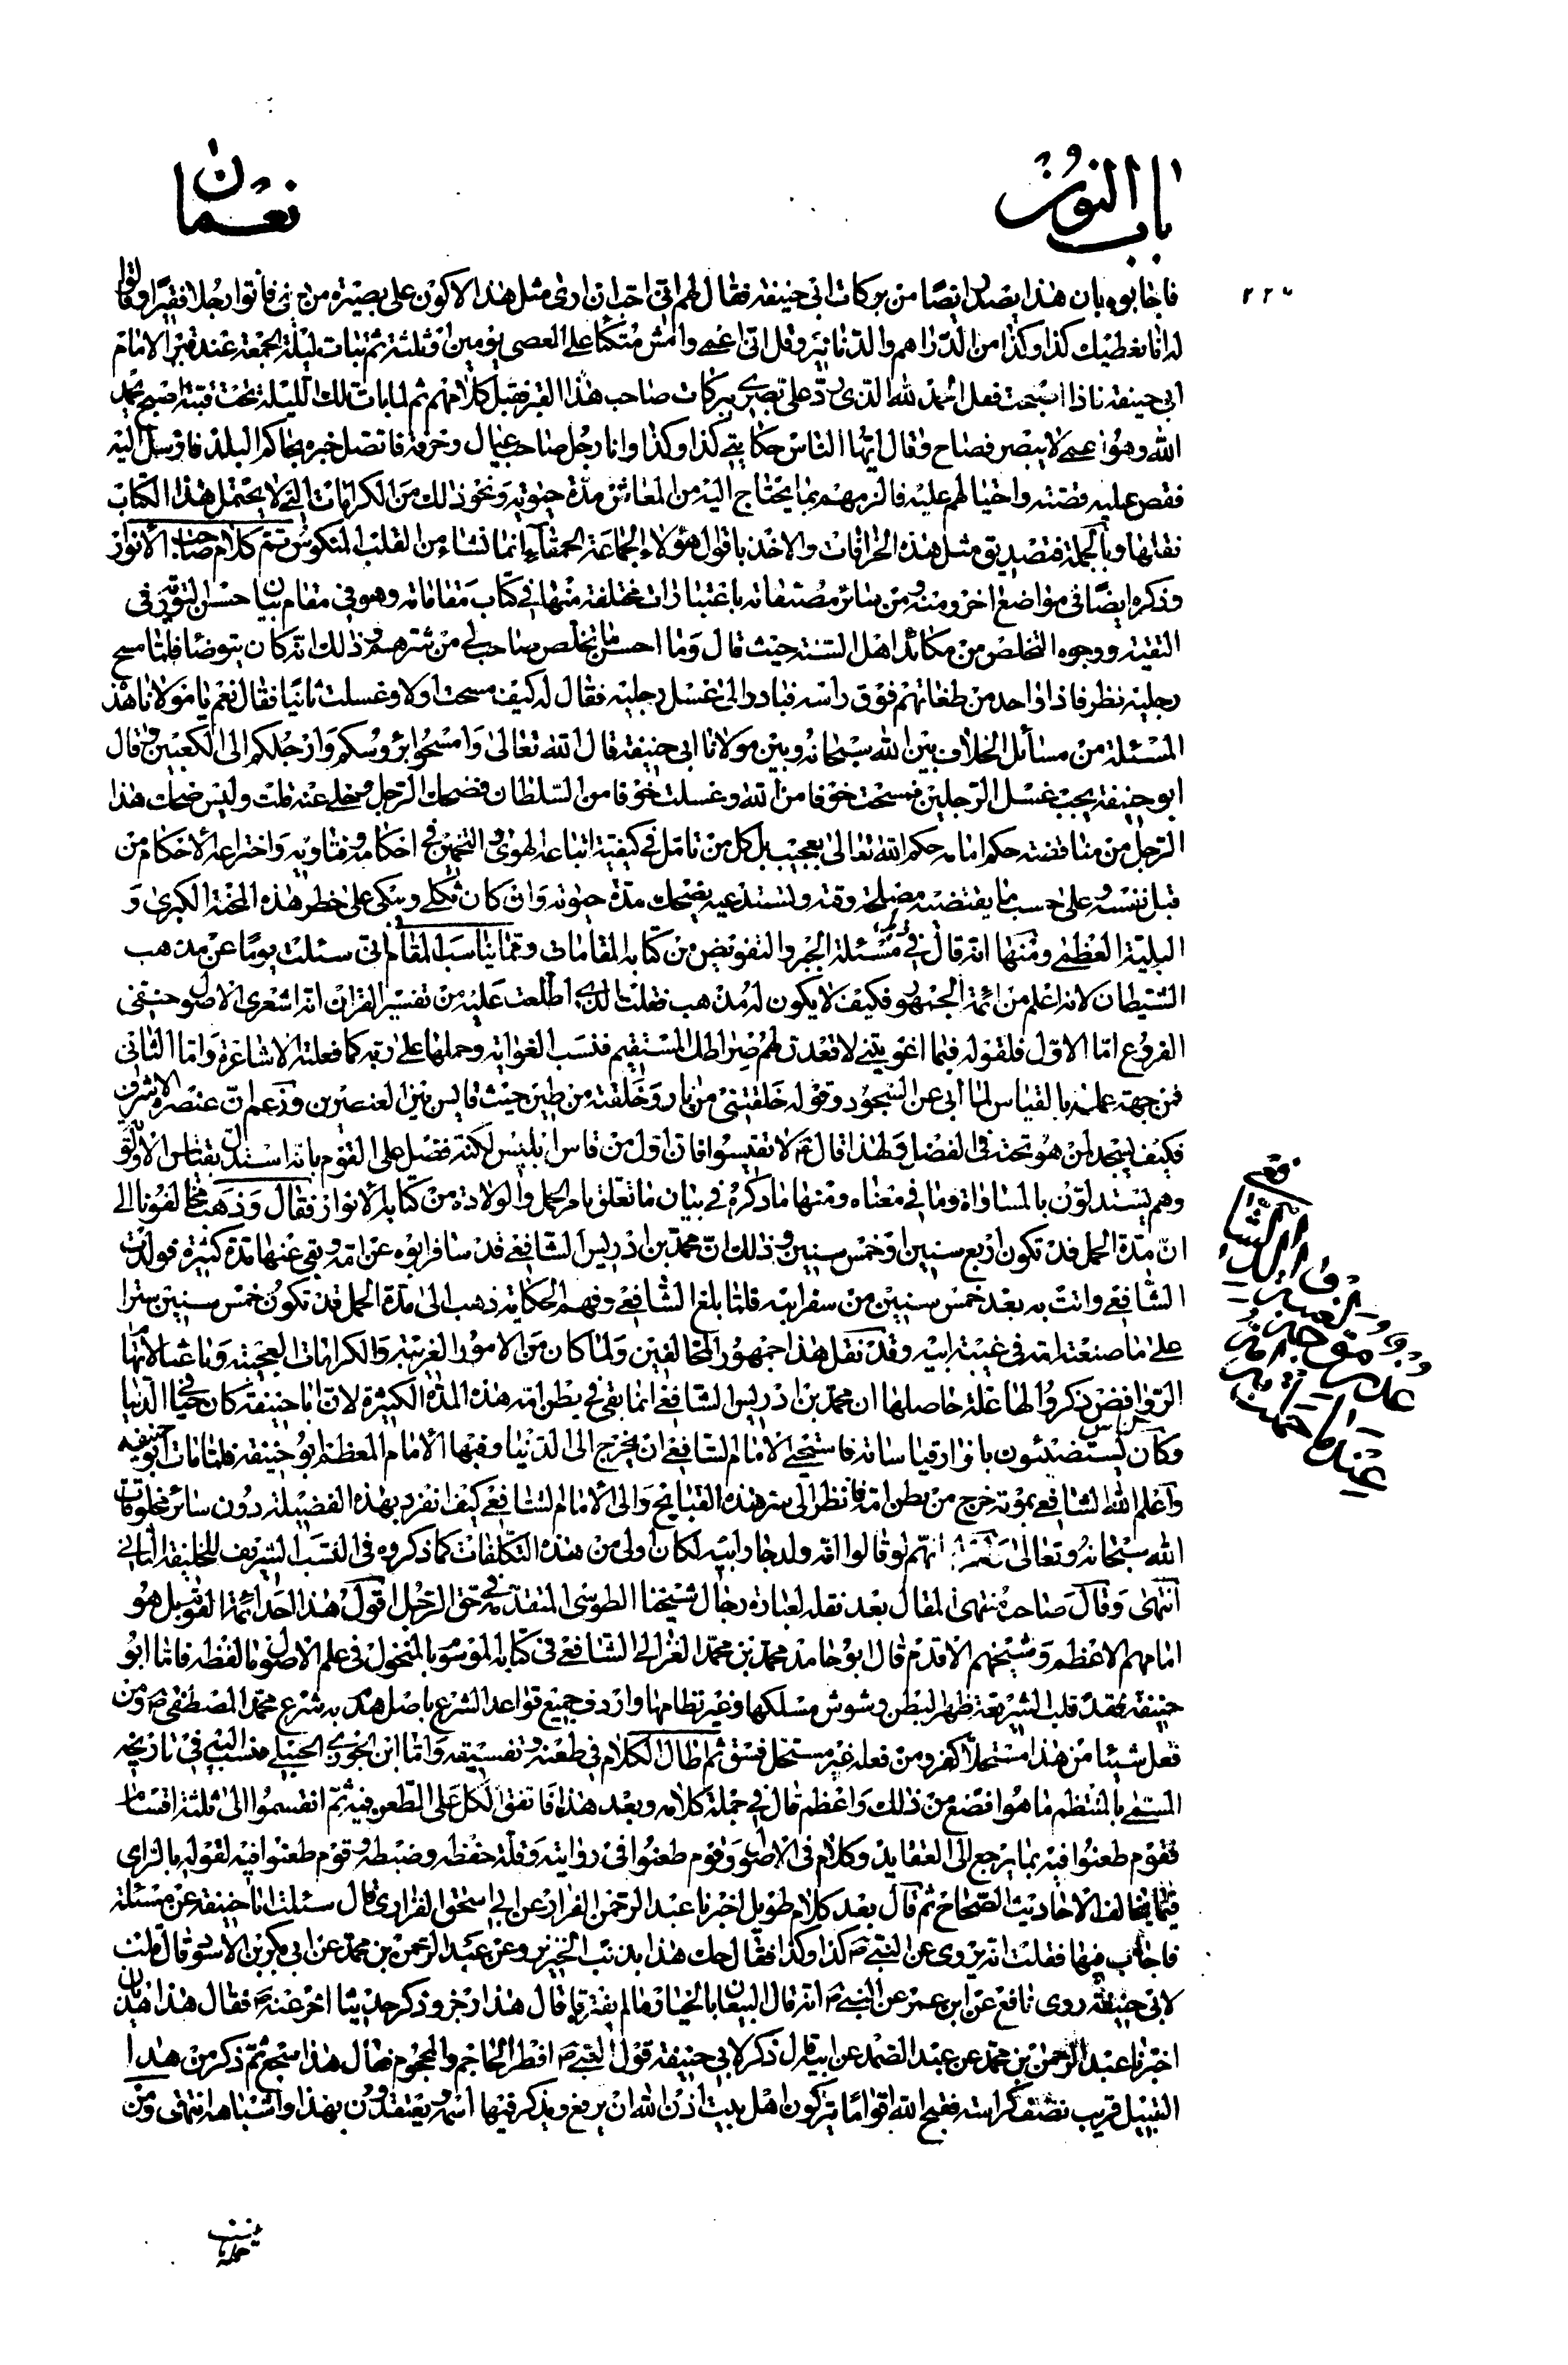 باب النون
نعمان
٢٢٧
فاجابوه بان هذا يصدر ايضا من بركات ابي حنيفة فقال لهم اني احب ان ارى مثل هذا الاكون على بصيرة من ديني فأتوا رجلا فقيرا وقالوا
له انا نعطيك كذا وكذا من الدراهم والدنانير وقل اني اعمى وامش متكئا على العصى يومين او ثلثة ثم تبات ليلة الجمعة عند قبر الامام
ابي حنيفة فاذا اصبحت فعل الحمد لله الذي رد على بصري ببركات صاحب هذا القبر فقبل كلامهم ثم لما بات تلك الليلة تحت قبته اصبح بحمد
الله وهو اعمى لا يبصر فصاح وقال ايها الناس حكايتي كذا وكذا وانا رجل صاحب عيال وحرفة فاتصل خبره بحاكم البلد فارسل اليه
فقص عليه قصته واحتيالهم عليه فالزمهم بما يحتاج اليه من المعاش مدة حيوته ونحو ذلك من الكرامات التي لا يحتمل هذا الكتاب
نقلها وبالجملة فتصديق مثل هذه الخرافات والاخذ باقوال هؤلاء الجماعة الحمقاء انما نشاء من القلب المنكوس تم كلام صاحب الانوار
وذكره ايضا في مواضع اخر ومنه ومن سائر مصنفاته باعتبارات مختلفة منها في كتاب مقاماته وهو في مقام بيان حسن التورية في
التقية ووجوه التخلص من مكائد اهل السنة حيث قال وما احسن ما تخلص صاحب لي من شرهم وذلك انه كان يتوضا فلما مسح
رجليه نظر فاذا واحد من طغاتهم فوق راسه فبادر الى غسل رجليه فقال له كيف مسحت اولا وغسلت ثانيا فقال نعم يا مولانا هذه
المسئلة من مسائل الخلاف بين الله سبحانه وبين مولانا ابي حنيفة قال الله تعالى وامسحوا برؤسكم وارجلكم الى الكعبين وقال
ابو حنيفة يجب غسل الرجلين فمسحت خوفا من الله وغسلت خوفا من السلطان فضحك الرجل وخلى عنه قلت وليس ضحك هذا
الرجل من مناقضة حكم امامه حكم الله تعالى بعجيب بل كل من تامل في كيفية اتباعه الهوى والتخمين في احكامه وفتاويه واختراعه الاحكام من
قبل نفسه على حسب ما يقتضيه مصلحة وقته وتستدعيه يضحك مدة حيوته وان كان ثكلى ويبكي على خطر هذه المحنة الكبرى و
البلية العظمى ومنها انه قال في مسئلة الجبر والتفويض من كتابه المقامات ومما يناسب المقام اني سئلت يوما عن مذهب
الشيطان لانه اعلم من ائمة الجمهور فكيف لا يكون له مذهب فقلت الذي اطلعت عليه من تفسير القران انه اشعرى الاصول حنفي
الفروع اما الاول فلقوله فبما اغويتني لاقعدن لهم صراطك المستقيم فنسب الغواية وحملها على ربه كما فعلته الاشاعرة واما الثاني
فمن جهة عمله بالقياس لما ابى عن السجود وقوله خلقتني من نار وخلقته من طين حيث قايس بين العنصرين وزعم ان عنصره الاشرف
فكيف يسجد لمن هو تحته في الفضل ولهذا قال ع لا تقيسوا فان اول من قاس ابليس لكنه فضل على القوم بانه استدل بقياس الاولوية
وهم يستدلون بالمساواة وما في معناه ومنها ما ذكره في بيان ما تعلق بامر الحمل والولادة من كتابه الانوار فقال وذهب مخالفونا الى
ان مدة الحمل قد تكون اربع سنين او خمس سنين وذلك ان محمد بن ادريس الشافعي قد سافر ابوه عن امه وبقي عنها مدة كثيرة فولدت
الشافعي واتت به بعد خمس سنين من سفر ابيه فلما بلغ الشافعي وفهم الحكاية ذهب الى ان مدة الحمل قد تكون خمس سنين سترا
على ما صنعته امه في غيبة ابيه وقد نقل هذا جمهور المخالفين ولما كان من الامور الغريبة والكرامات العجيبة
الروافض ذكروا لها علة حاصلها ان محمد بن ادريس الشافعي انما بقي في بطن امه هذه المدة الكثيرة لان ابا حنيفة كان حيا في الدنيا
وكان الناس يستضيئون بانوار قياساته فاستحيى الامام الشافعي ان يخرج الى الدنيا وفيها الامام المعظم ابو حنيفة فلما مات ابو حنيفة
واعلم الله الشافعي بموته خرج من بطن امه فانظر الى ستر هذه القبايح والى الامام الشافعي كيف انفرد بهذه الفضيلة دون سائر مخلوقات
الله سبحانه وتعالى انهم لو قالوا انه ولد جار ابيه لكان اولى من هذه التكلفات كما ذكروه في النسب الشريف للخليفة الثاني
انتهى وقال صاحب منتهى المقال بعد نقله لعبارة رجال شيخنا الطوسي المتقدمة في حق الرجل اقول هذا احد ائمة القوم بل هو
امامهم الاعظم وشيخهم الاقدم قال ابو حامد محمد بن محمد الغزالي الشافعي في كتابه الموسوم بالمنخول في علم الاصول ما لفظه فاما ابو
حنيفة فقد قلب الشريعة ظهرا لبطن وشوش مسلكها وغير نظامها واردف جميع قواعد الشرع باصل هدم به شرع محمد المصطفى ص ومن
فعل شيئا من هذا مستحلا كفر ومن فعله غير مستحل فسق ثم اطال الكلام في طعنه وتفسيقه واما ابن الجوزي الحنبلي فنسب اليه في تاريخه
المسمى بالمنتظم ما هو افضع من ذلك واعظم قال في جملة كلامه وبعد هذا فاتفق الكل على الطعن فيه ثم انقسموا الى ثلثة اقسام
فقوم طعنوا فيه بما يرجع الى العقايد وكلام في الاصول وقوم طعنوا في روايته وقلة حفظه وضبطه وقوم طعنوا فيه لقوله بالراى
فيما يخالف الاحاديث الصحاح ثم قال بعد كلام طويل اخبرنا عبد الرحمن القزاز عن ابي اسحق الفزاري قال سئلت ابا حنيفة عن مسئلة
فاجاب فيها فقلت انه يروى عن النبي ص كذا وكذا فقال حك هذا بذنب الخنزير وعن عبد الرحمن بن محمد عن ابي بكر بن الاسود قال قلت
لابي حنيفة روى نافع عن ابن عمر عن النبي ص انه قال البيعان بالخيار ما لم يفترقا قال هذا رجز وذكر حديثا اخر عنه ص فقال هذا هذيان
اخبرنا عبد الرحمن بن محمد عن عبد الصمد عن ابيه قال ذكر لابي حنيفة قول النبي ص افطر الحاجم والمحجوم فقال هذا سجع ثم ذكر من هذا
القبيل قريب نصف كراسة فقبح الله اقواما يتركون اهل بيت اذن الله ان يرفع ويذكر فيها اسمه ويعتقدون بهذا واشباهه انتهى ومن